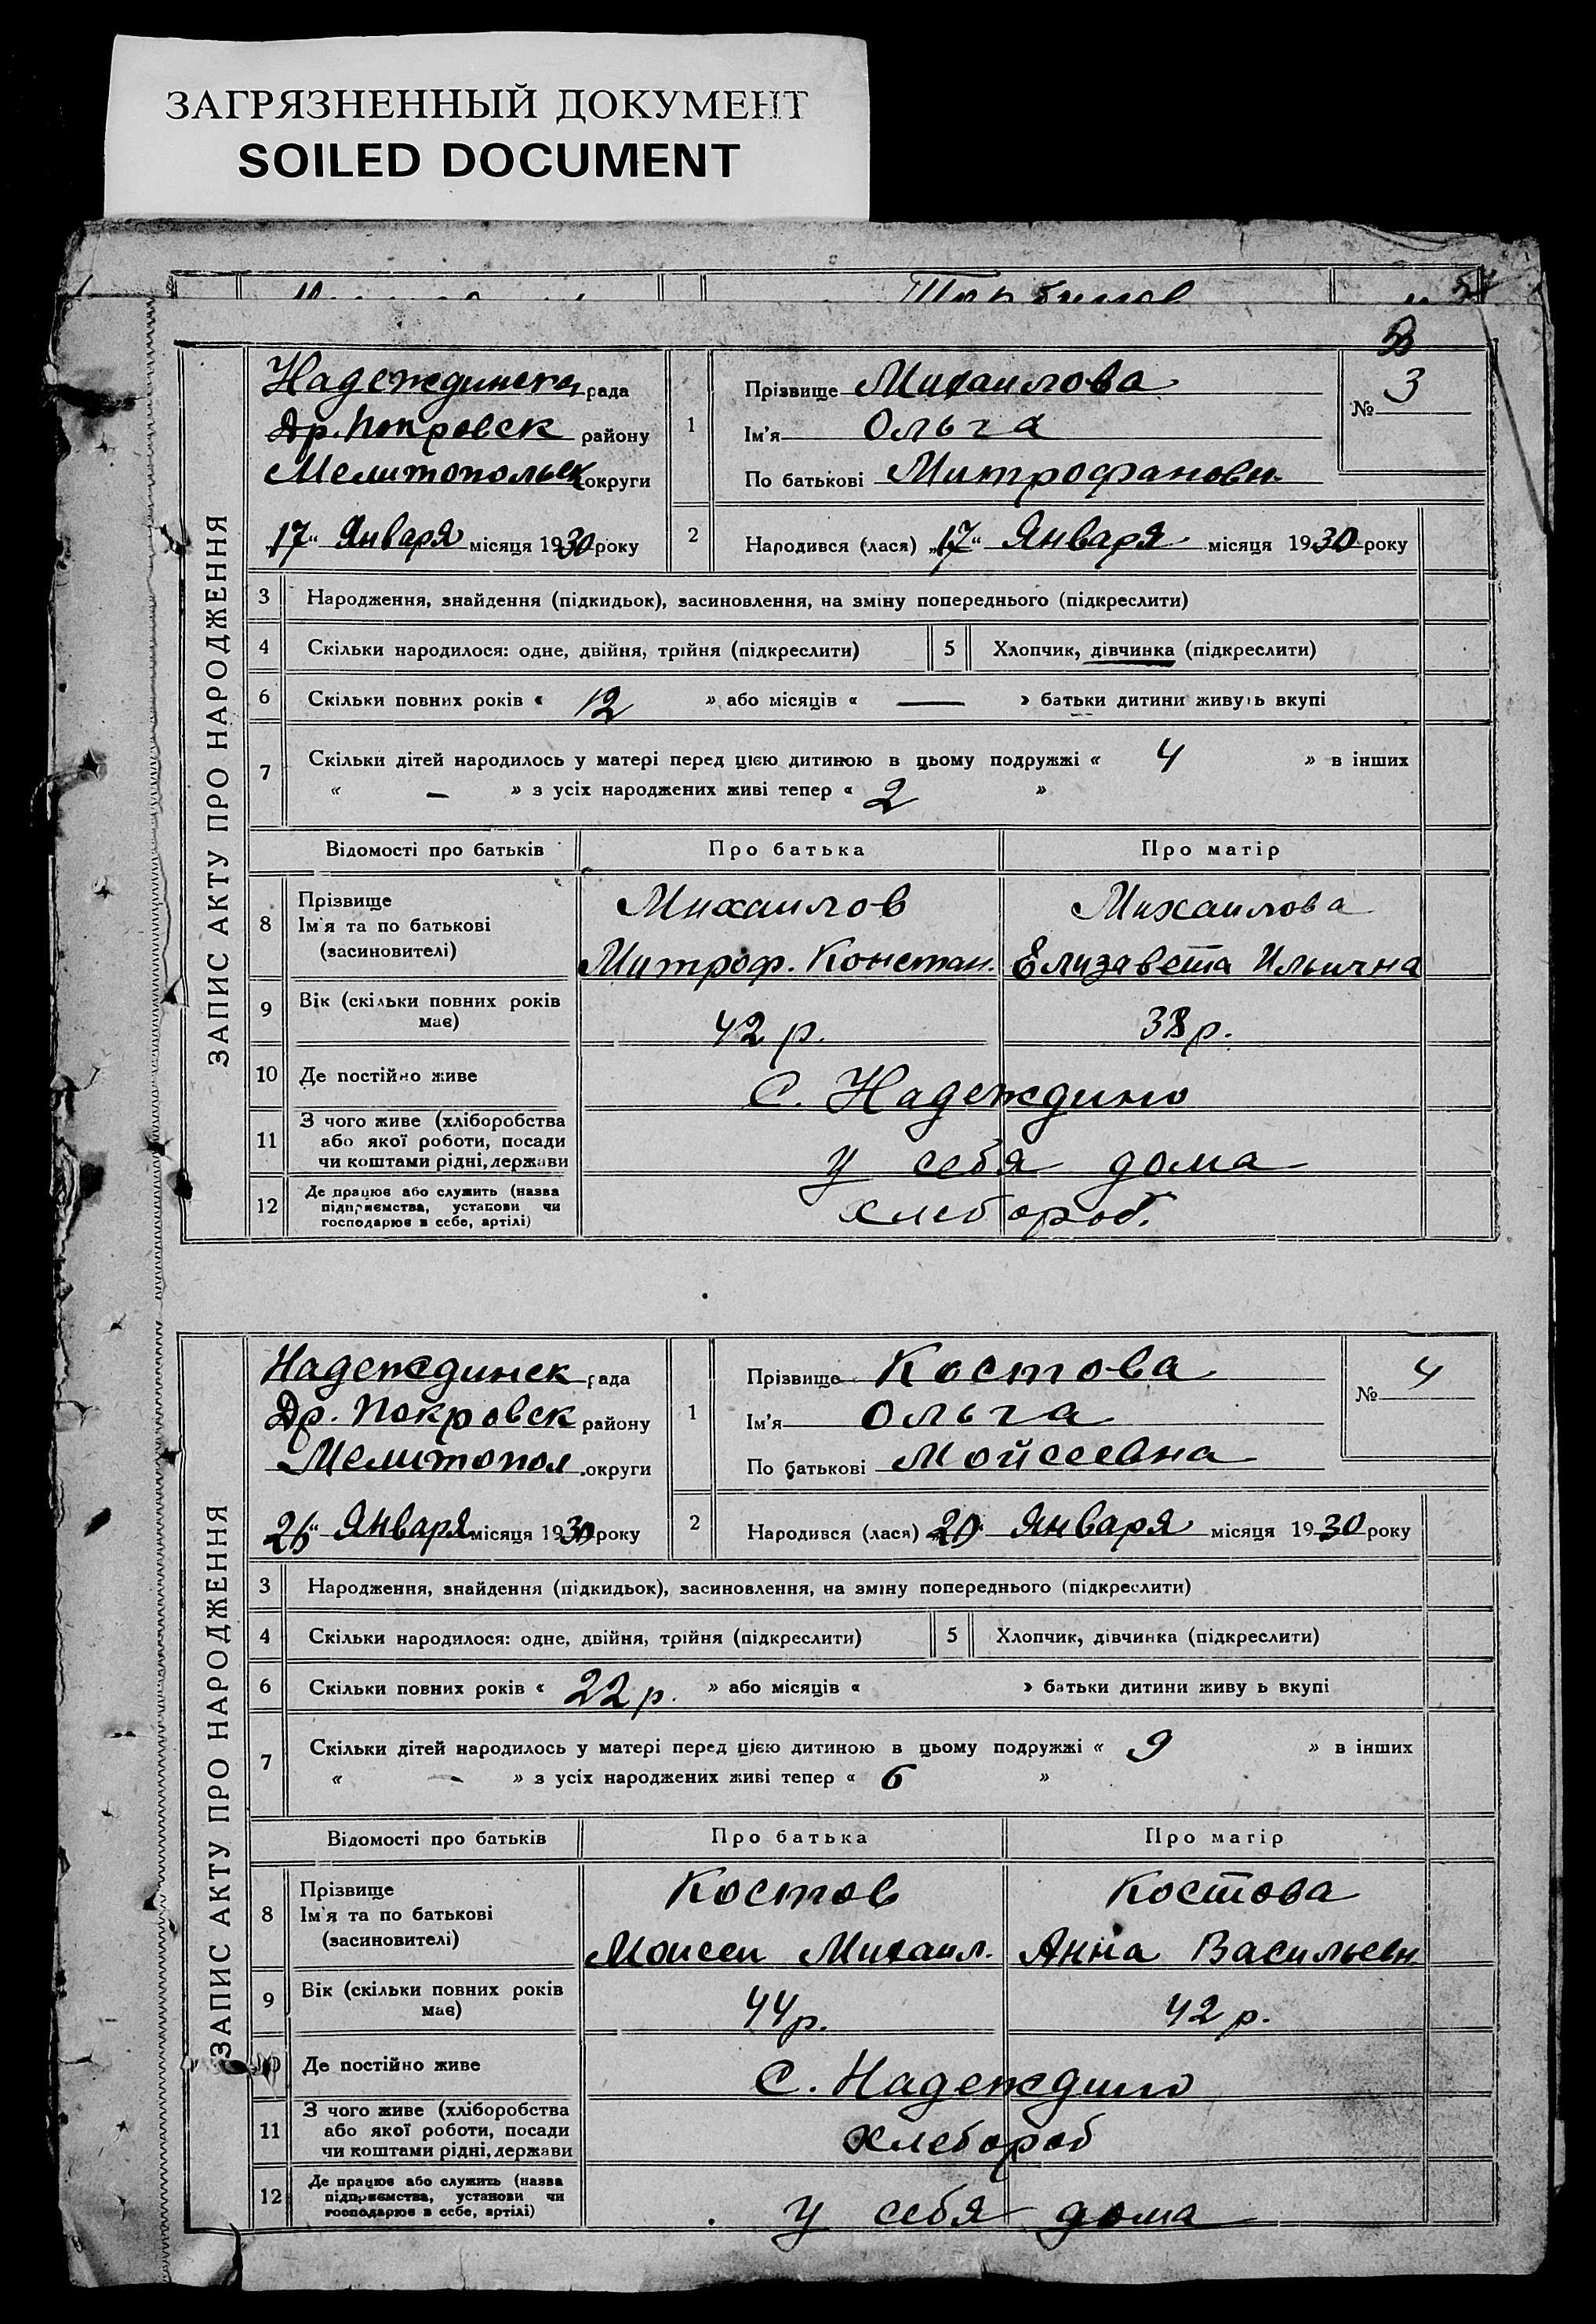 ЗАГРЯЗНЕННЫЙ ДОКУМЕНТ
SOILED DOCUMENT
ЗАПИС АКТУ ПРО НАРОДЖЕННЯ
Надеждинска рада
Др. Покровск району
Мелитопольск округи
17 Января місяця 1930 року
1
Прізвище Михаилова
Ім'я Ольга
По батькові Митрофановн.
№ 3
2
Народився (лася) „17“ Января місяця 1930 року
3 Народження, знайдення (підкидьок), засиновлення, на зміну попереднього (підкреслити)
4 Скільки народилося: одне, двійня, трійня (підкреслити) 5 Хлопчик, дівчинка (підкреслити)
6 Скільки повних років « 12 » або місяців « — » батьки дитини живуть вкупі
7 Скільки дітей народилось у матері перед цією дитиною в цьому подружжі « 4 » в інших
« — » з усіх народжених живі тепер « 2 »
Відомості про батьків Про батька Про матір
8 Прізвище
Ім'я та по батькові
(засиновителі)
Михаилов
Митроф. Констан.
Михаилова
Елизавета Ильична
9 Вік (скільки повних років
має)
42 р. 38 р.
10 Де постійно живе С. Надеждино
11 З чого живе (хліборобства
або якої роботи, посади
чи коштами рідні, держави
у себя дома
12 Де працює або служить (назва
підприємства, установи чи
господарює в себе, артілі)
хлебороб.
ЗАПИС АКТУ ПРО НАРОДЖЕННЯ
Надеждинск рада
Др. Покровск району
Мелитопол. округи
Января місяця 1930 року
1
Прізвище Костова
Ім'я Ольга
По батькові Мойсеевна
№ 4
2
Народився (лася) Января місяця 1930 року
3 Народження, знайдення (підкидьок), засиновлення, на зміну попереднього (підкреслити)
4 Скільки народилося: одне, двійня, трійня (підкреслити) 5 Хлопчик, дівчинка (підкреслити)
6 Скільки повних років « 22 р. » або місяців « » батьки дитини живу ь вкупі
7 Скільки дітей народилось у матері перед цією дитиною в цьому подружжі « 9 » в інших
« — » з усіх народжених живі тепер « 6 »
Відомості про батьків Про батька Про матір
8 Прізвище
Ім'я та по батькові
(засиновителі)
Костов
Моисеи Михаил.
Костова
Анна Васильевн.
9 Вік (скільки повних років
має)
44 р. 42 р.
10 Де постійно живе С. Надеждино
11 З чого живе (хліборобства
або якої роботи, посади
чи коштами рідні, держави
хлебороб
12 Де працює або служить (назва
підприємства, установи чи
господарює в себе, артілі)
у себя дома